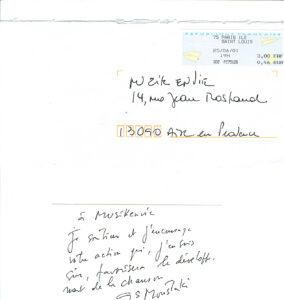 75 PARIS ILE
SAINT LOUIS
25/06/01
19H
3,00 FRF
0,46 EUR
MUZIK ENVIE
14, rue Jean Rostand
13090 Aix en Provence
à MUSIKENVIE
je soutiens et j'encourage
votre action qui, j'en suis
sûr, favorisera le développe-
ment de la chanson
G Moustaki